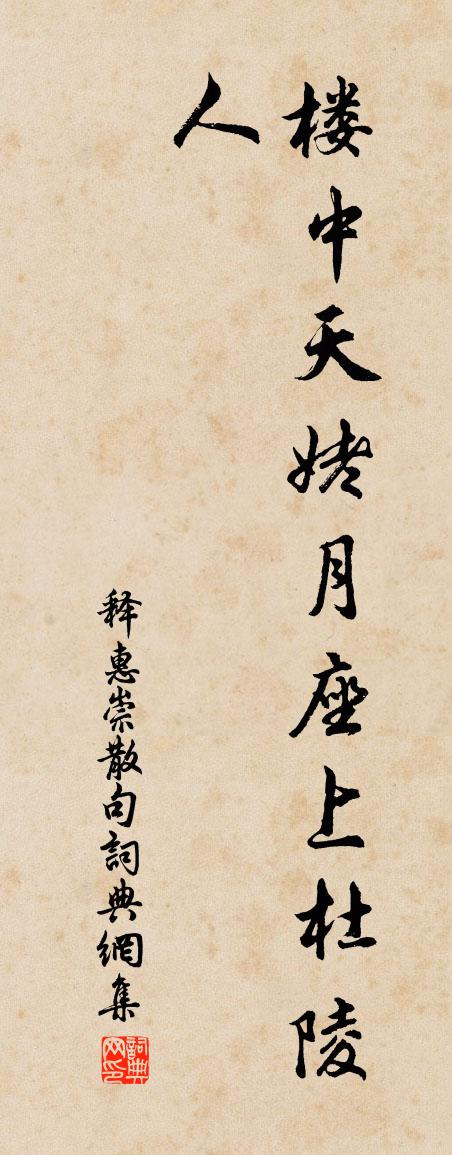 楼中天姥月座上杜陵
人
释惠崇散句詞典網集
詞典
网印